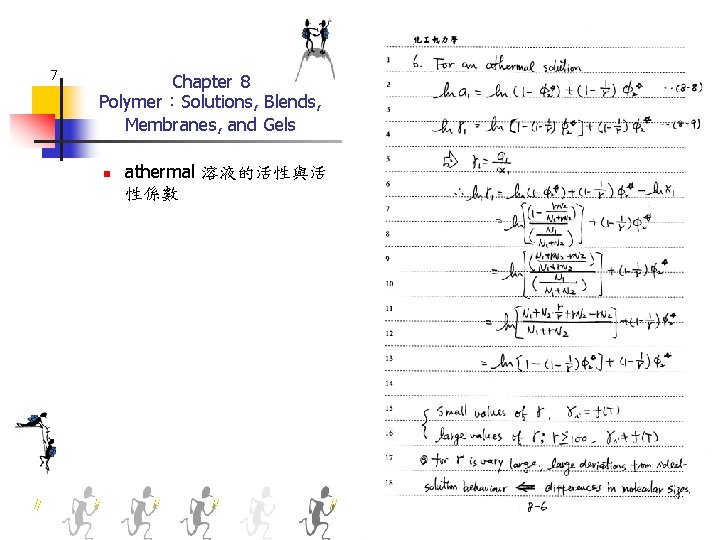 7
Chapter 8
Polymer：Solutions, Blends,
Membranes, and Gels
athermal 溶液的活性與活
性係數
化工熱力學
1 6. For an athermal solution
2 ln a₁ = ln (1-φ₂*) + (1-1/r) φ₂* ··(8-8)
3
4 ln γ₁ = ln[1-(1-1/r)φ₂*] + (1-1/r) φ₂* ··(8-9)
5 ⇒ γ₁ = a₁/x₁
6 ∴ ln γ₁ = ln(1-φ₂*) + (1-1/r) φ₂* - ln x₁
7 = ln[(1 - rN₂/(N₁+rN₂))/(N₁/(N₁+N₂))] + (1-1/r) φ₂*
8
9 = ln[((N₁+rN₂-rN₂)/(N₁+rN₂))/(N₁/(N₁+N₂))] + (1-1/r) φ₂*
10
11 = ln[(N₁+N₂·r/r+rN₂-rN₂)/(N₁+rN₂)] + (1-1/r) φ₂*
12
13 = ln[1-(1-1/r)φ₂*] + (1-1/r) φ₂*
14
15 { Small values of r,
16 large values of r; r≥100,
17 for r is vary large, large deviations from
18 solution behaviour ⇐ differences in molecular sizes.
8-6